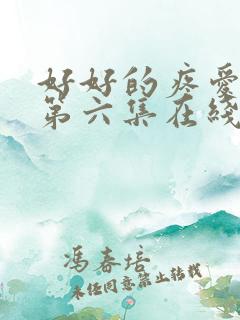 好好的疼爱
第六集在线
冯春培
未经同意禁止转载